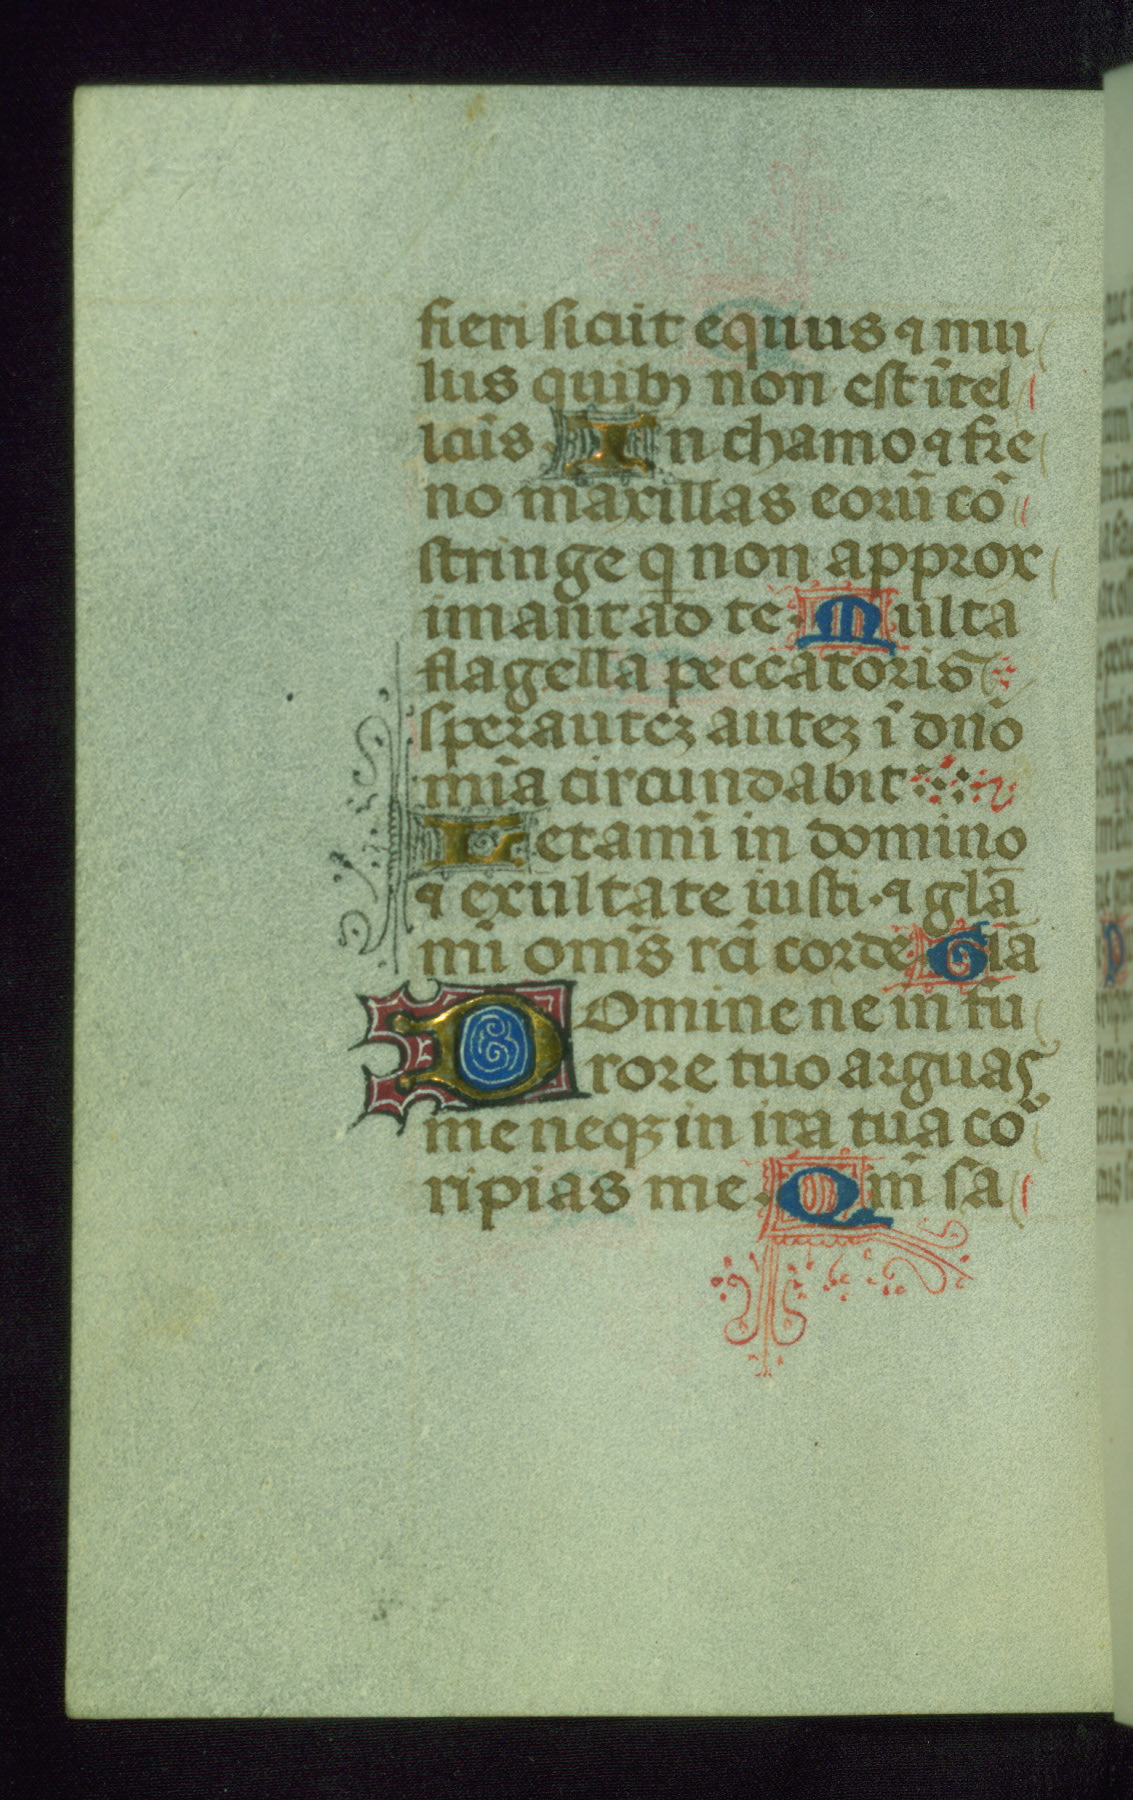 fieri sicut equus ⁊ mu
lus quibꝯ non est ītel
lcūs In chamo ⁊ fre
no maxillas eorū cō
stringe q̲ non approx
imant ad te Multa
flagella peccatoris
sperantez autez ī dn̄o
mīa circundabit
Letami in domino
⁊ exultate iusti · ⁊ glā
mī om̄s rc̄i corde Glā
Domine ne in fu
rore tuo arguas
me neqꝫ in ira tua co
ripias me · Qm̄ sa